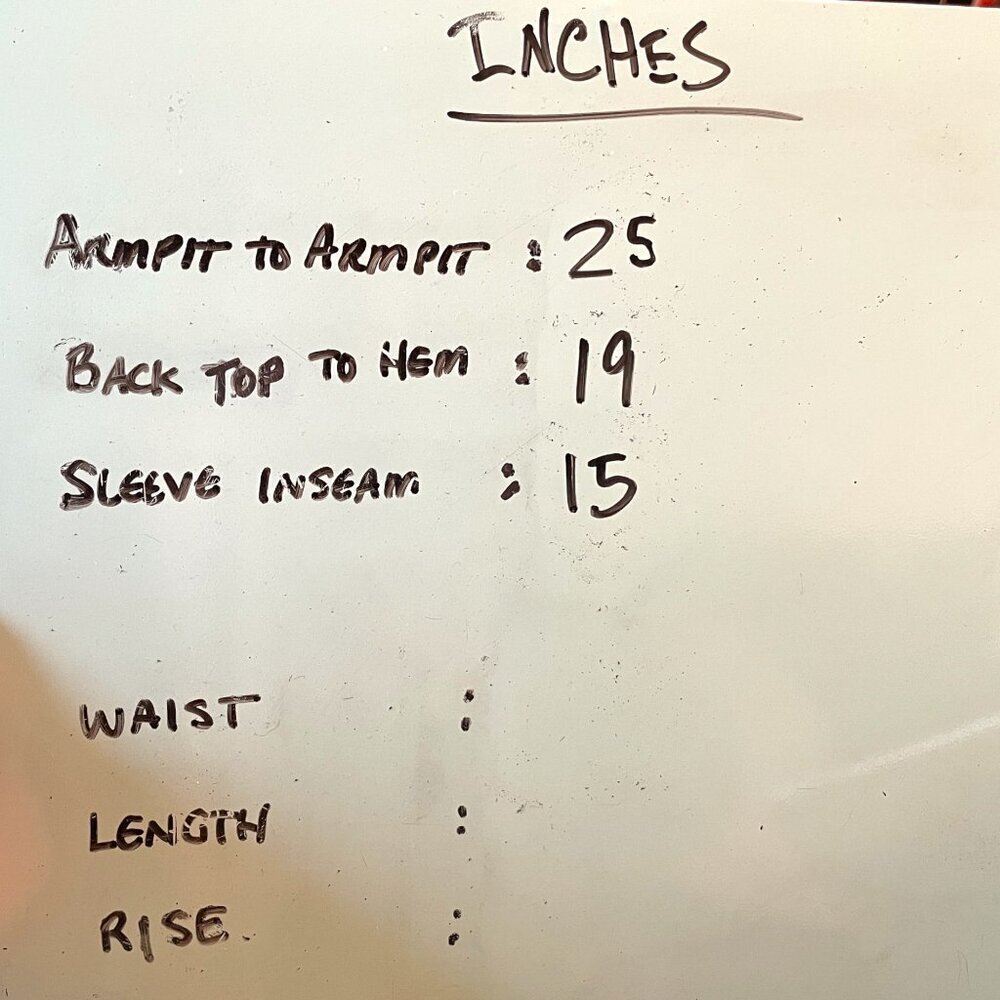 INCHES
ARMPIT TO ARMPIT : 25
BACK TOP TO HEM : 19
SLEEVE INSEAM : 15
WAIST :
LENGTH :
RISE :